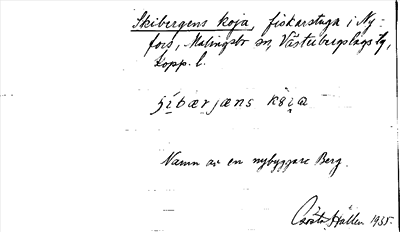 Skibergens koja, fiskarstuga i Ny-
fors, Malingsbo sn, Västerbergslags tg,
Kopp. l.
ʃíbærjæns kɷ̀ia
Namn av en nybyggare Berg.
Hällen 1935.